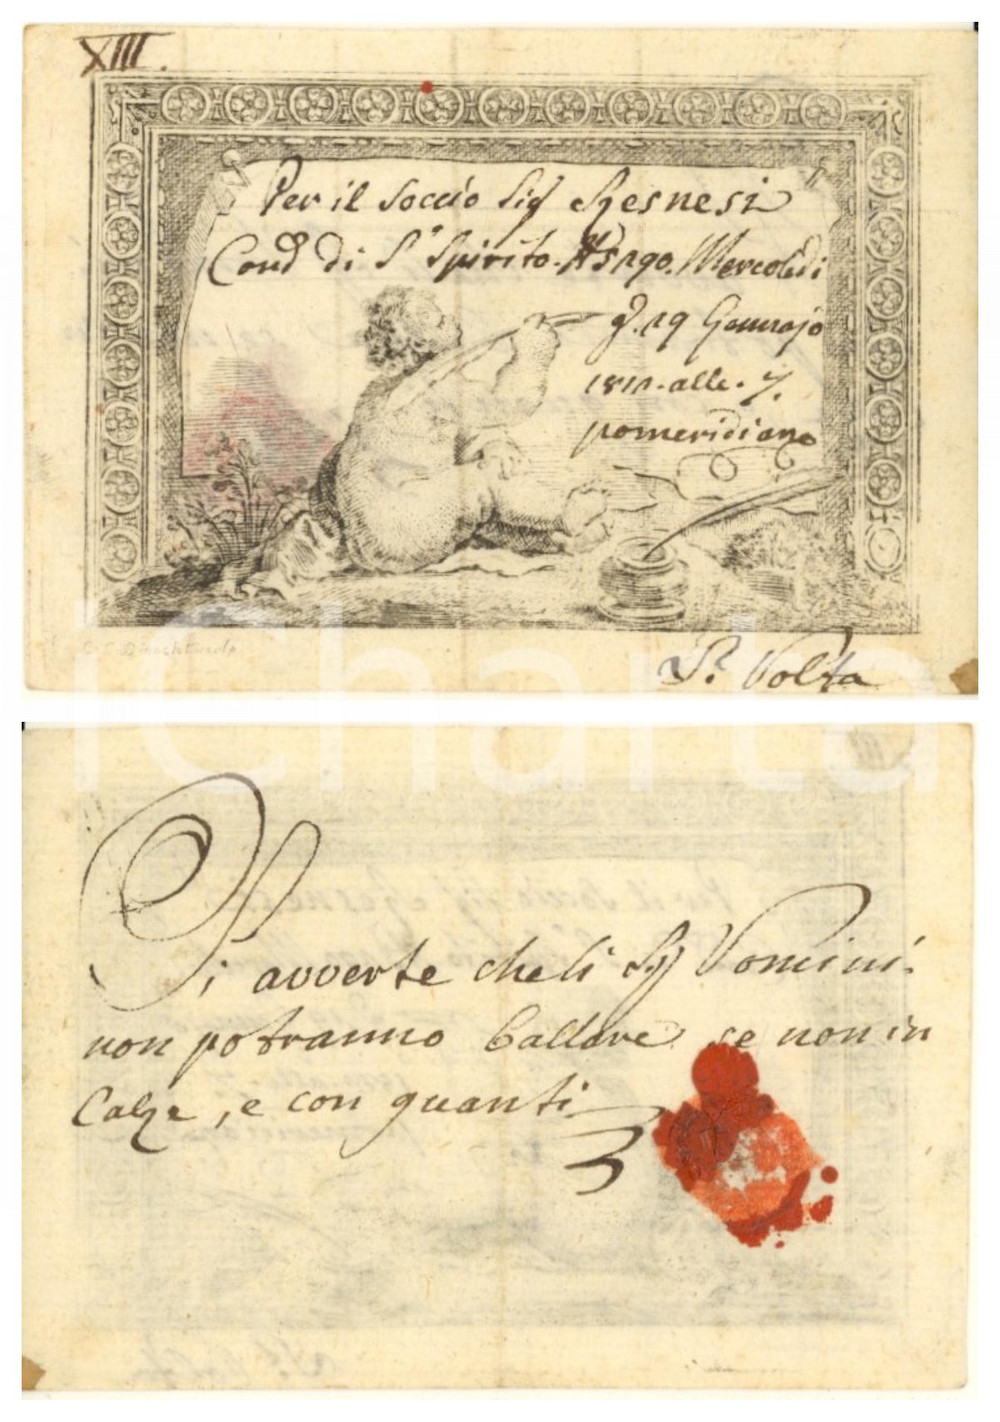 XIII.
Per il Soccio Sig
Con di S. Spirito. Mercoledi
19 Gennajo
alle. 7.
pomeridiane
P. Volta
Si avverte che li Sig Vomini
non potranno ballare se non in
Calze, e con guanti
iCharta